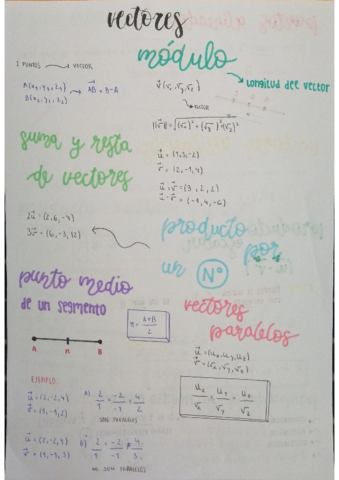 vectores
módulo
2 PUNTOS → VECTOR
A(x₁, y₁, z₁)
B(x₂, y₂, z₂)
→ AB = B-A
v(v₁, v₂, v₃)
Longitud del vector
VECTOR
‖v‖ = √(v₁)² + (v₂)² + (v₃)²
suma y resta
de vectores
u = (1, 3, -2)
v = (2, -1, 4)
u + v = (3, 2, 2)
u - v = (-1, 4, -6)
2u = (2, 6, -4)
3v = (6, -3, 12)
producto
por
un Nº
punto medio
de un segmento
A M B
M = A+B / 2
vectores
paralelos
u = (uₓ, uᵧ, u_z)
v = (vₓ, vᵧ, v_z)
uₓ/vₓ = uᵧ/vᵧ = u_z/v_z
EJEMPLO:
u = (2, -2, 4)
v = (1, -1, 2)
A) 2/1 = -2/-1 = 4/2
SON PARALELOS
u = (2, -2, 4)
v = (1, -1, 3)
B) 2/1 = -2/-1 ≠ 4/3
NO SON PARALELOS